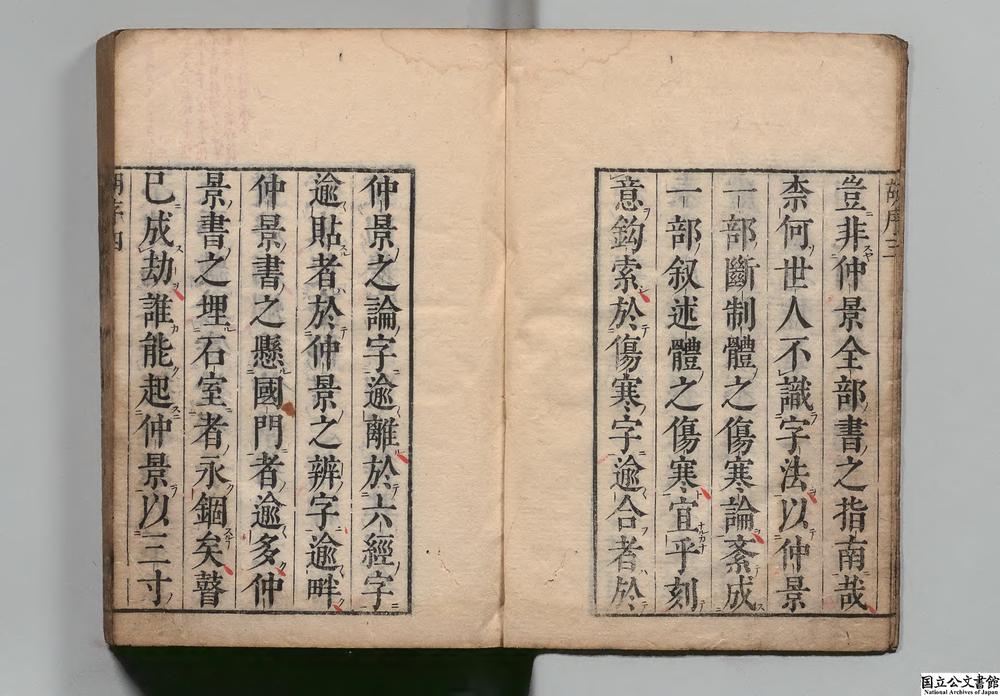 豈非仲景全部書之指南哉
柰何世人不識字法以仲景
一部斷制體之傷寒論紊成
一部叙述體之傷寒宜乎刻
意鈎索於傷寒字逾合者於
仲景之論字逾離於六經字
逾貼者於仲景之辨字逾畔
仲景書之懸國門者逾多仲
景書之埋石室者永錮矣瞽
已成劫誰能起仲景以三寸
国立公文書館
National Archives of Japan